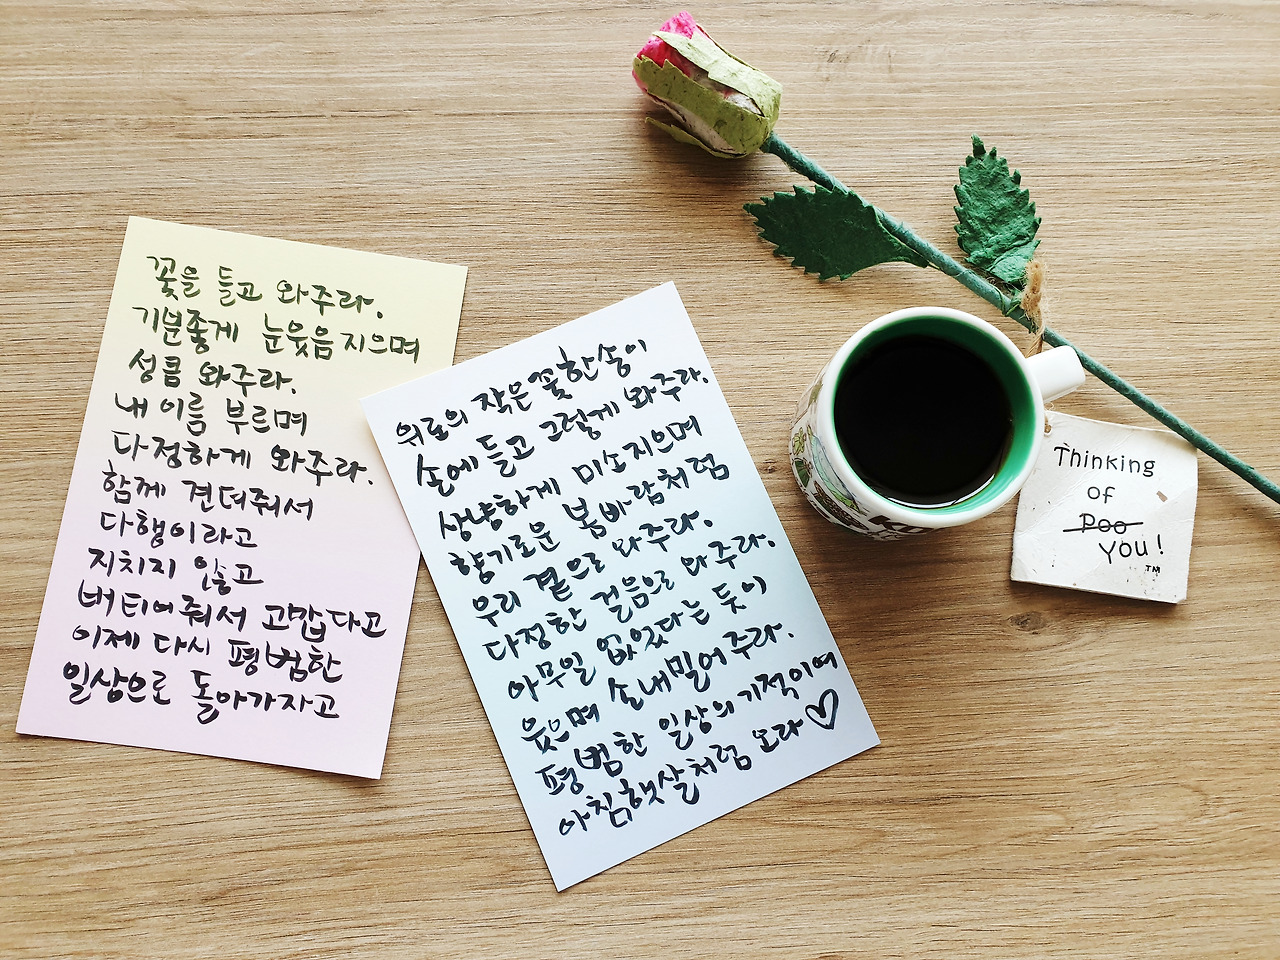 꽃을 들고 와주라.
기분좋게 눈웃음 지으며
성큼 와주라.
내 이름 부르며
다정하게 와주라.
함께 견뎌줘서
다행이라고
지치지 않고
버티어줘서 고맙다고
이제 다시 평범한
일상으로 돌아가자고
위로의 작은 꽃 한송이
손에 들고 그렇게 와주라.
상냥하게 미소지으며
향기로운 봄바람처럼
우리 곁으로 와주라.
다정한 걸음으로 와주라.
아무일 없었다는 듯이
웃으며 손내밀어 주라.
평범한 일상의 기적이여
아침햇살처럼 오라♡
Thinking
of
Poo
You!
TM